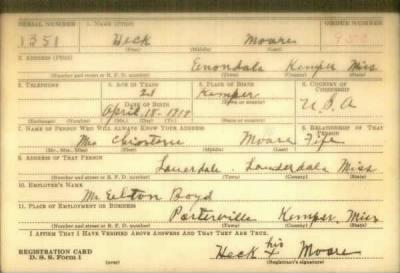 SERIAL NUMBER 1. NAME (Print) ORDER NUMBER
1351 Heck Moore
(First) (Middle) (Last)
2. ADDRESS (Print)
Enondale Kemper Miss
(Number and street or R. F. D. number) (Town) (County) (State)
3. TELEPHONE 4. AGE IN YEARS 5. PLACE OF BIRTH 6. COUNTRY OF CITIZENSHIP
21 Kemper
DATE OF BIRTH (Town or county) U.S.A
April 15-1919
(Exchange) (Number) (Mo.) (Day) (Yr.) (State or country)
7. NAME OF PERSON WHO WILL ALWAYS KNOW YOUR ADDRESS 8. RELATIONSHIP OF THAT PERSON
Mrs Moore
(Mr., Mrs., Miss) (First) (Middle) (Last)
9. ADDRESS OF THAT PERSON
Lauderdale Lauderdale Miss
(Number and street or R. F. D. number) (Town) (County) (State)
10. EMPLOYER'S NAME
Mr Eelton Boyd
11. PLACE OF EMPLOYMENT OR BUSINESS
Porterville Kemper Miss
(Number and street or R. F. D. number) (Town) (County) (State)
I AFFIRM THAT I HAVE VERIFIED ABOVE ANSWERS AND THAT THEY ARE TRUE.
REGISTRATION CARD
D. S. S. Form 1 (over)
Heck his x Moore
(Registrant's signature)